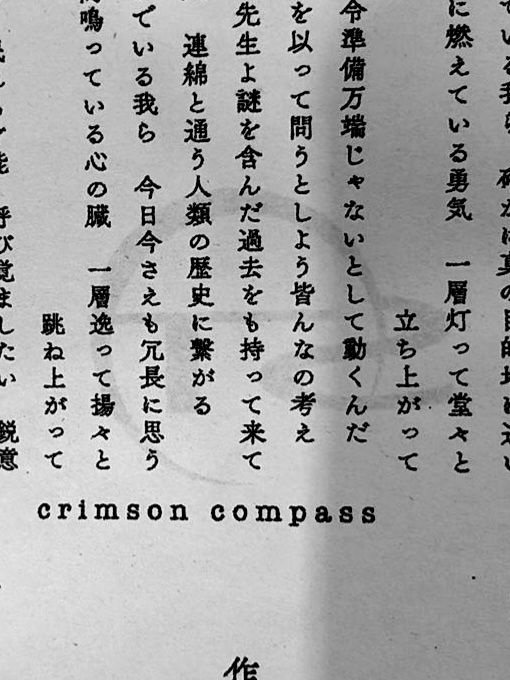 いる我ら 確かに真の目的地に近い
に燃えている勇気 一層灯って堂々と
立ち上がって
令準備万端じゃないとして動くんだ
を以って問うとしよう皆んなの考え
先生よ謎を含んだ過去をも持って来て
連綿と通う人類の歴史に繋がる
でいる我ら 今日今さえも冗長に思う
鳴っている心の臓 一層逸って揚々と
跳ね上がって
呼び覚ましたい 鋭意
crimson compass
作